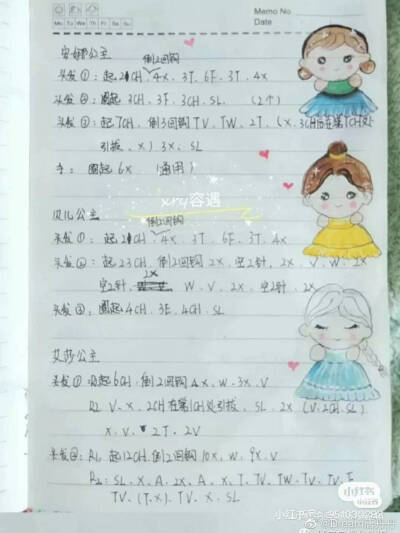 Memo No
Mo Tu We Th Fr Sa Su
Date
安娜公主
倒2回钩
头发①：起21CH、4X、3T、6F、3T、4X
头发②：圈起3CH、3F、3CH、SL （2个）
头发③：起7CH、倒3回钩TV、TW、2T、(X、3CH后在第1CH处
引拔、X) 3X、SL
手：圈起6X （通用）
xry容遇
贝儿公主
倒2回钩
头发①：起21CH、4X、3T、6F、3T、4X
头发②：起23CH、倒2回钩2X、空2针、2X、V、W、2X
空2针、2X、W、V、2X、空2针、2X
头发③：圈起4CH、3E、4CH、SL
艾莎公主
头发① 起6CH、倒2回钩4X、W、3X、V
R2 V、X、2CH在第1CH处引拔、SL、2X (V、2CH、SL)
X、V、2T、2V
头发②：R1、起12CH、倒2回钩10X、W、9X、V
R2：SL、X、A、2X、A、X、T、TV、TW、TV、TV、T、
TV、(T、X)、TV、X、SL
小红书
小红书
@Dream